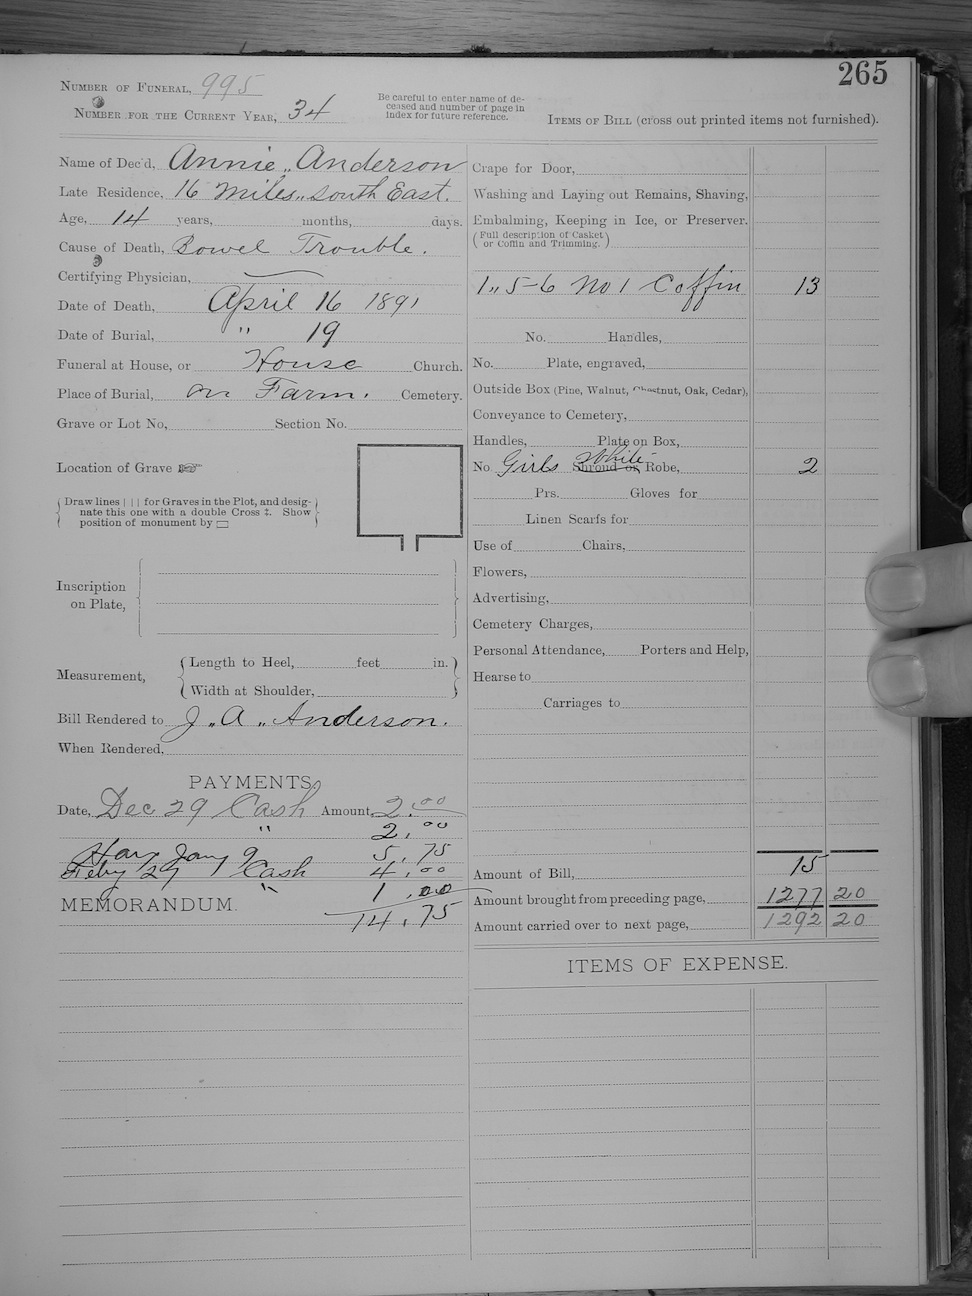 265
Number of Funeral, 995
Number for the Current Year, 34
Be careful to enter name of de-
ceased and number of page in
index for future reference.
Items of Bill (cross out printed items not furnished).
Name of Dec'd, Annie „ Anderson
Late Residence, 16 Miles „ South East.
Age, 14 years, months, days.
Cause of Death, Bowel Trouble.
Certifying Physician,
Date of Death, April 16 1891
Date of Burial, " 19
Funeral at House, or House Church.
Place of Burial, on Farm. Cemetery.
Grave or Lot No, Section No.
Location of Grave
Draw lines | | | for Graves in the Plot, and desig-
nate this one with a double Cross ‡. Show
position of monument by
Inscription
on Plate,
Measurement,
Length to Heel, feet in.
Width at Shoulder,
Bill Rendered to J „ A „ Anderson.
When Rendered,
PAYMENTS
Date, Dec 29 Cash Amount, 2.00
" 2.00
Hay Jany 9 5.75
Feby 27 Cash 4.00
" 1.00
MEMORANDUM.
14.75
Crape for Door,
Washing and Laying out Remains, Shaving,
Embalming, Keeping in Ice, or Preserver.
(Full description of Casket
or Coffin and Trimming.)
1 „ 5-6 No 1 Coffin 13
No. Handles,
No. Plate, engraved,
Outside Box (Pine, Walnut, Chestnut, Oak, Cedar),
Conveyance to Cemetery,
Handles, Plate on Box,
White
No. Girls Shroud or Robe, 2
Prs. Gloves for
Linen Scarfs for
Use of Chairs,
Flowers,
Advertising,
Cemetery Charges,
Personal Attendance, Porters and Help,
Hearse to
Carriages to
Amount of Bill, 15
Amount brought from preceding page, 1277 20
Amount carried over to next page, 1292 20
ITEMS OF EXPENSE.